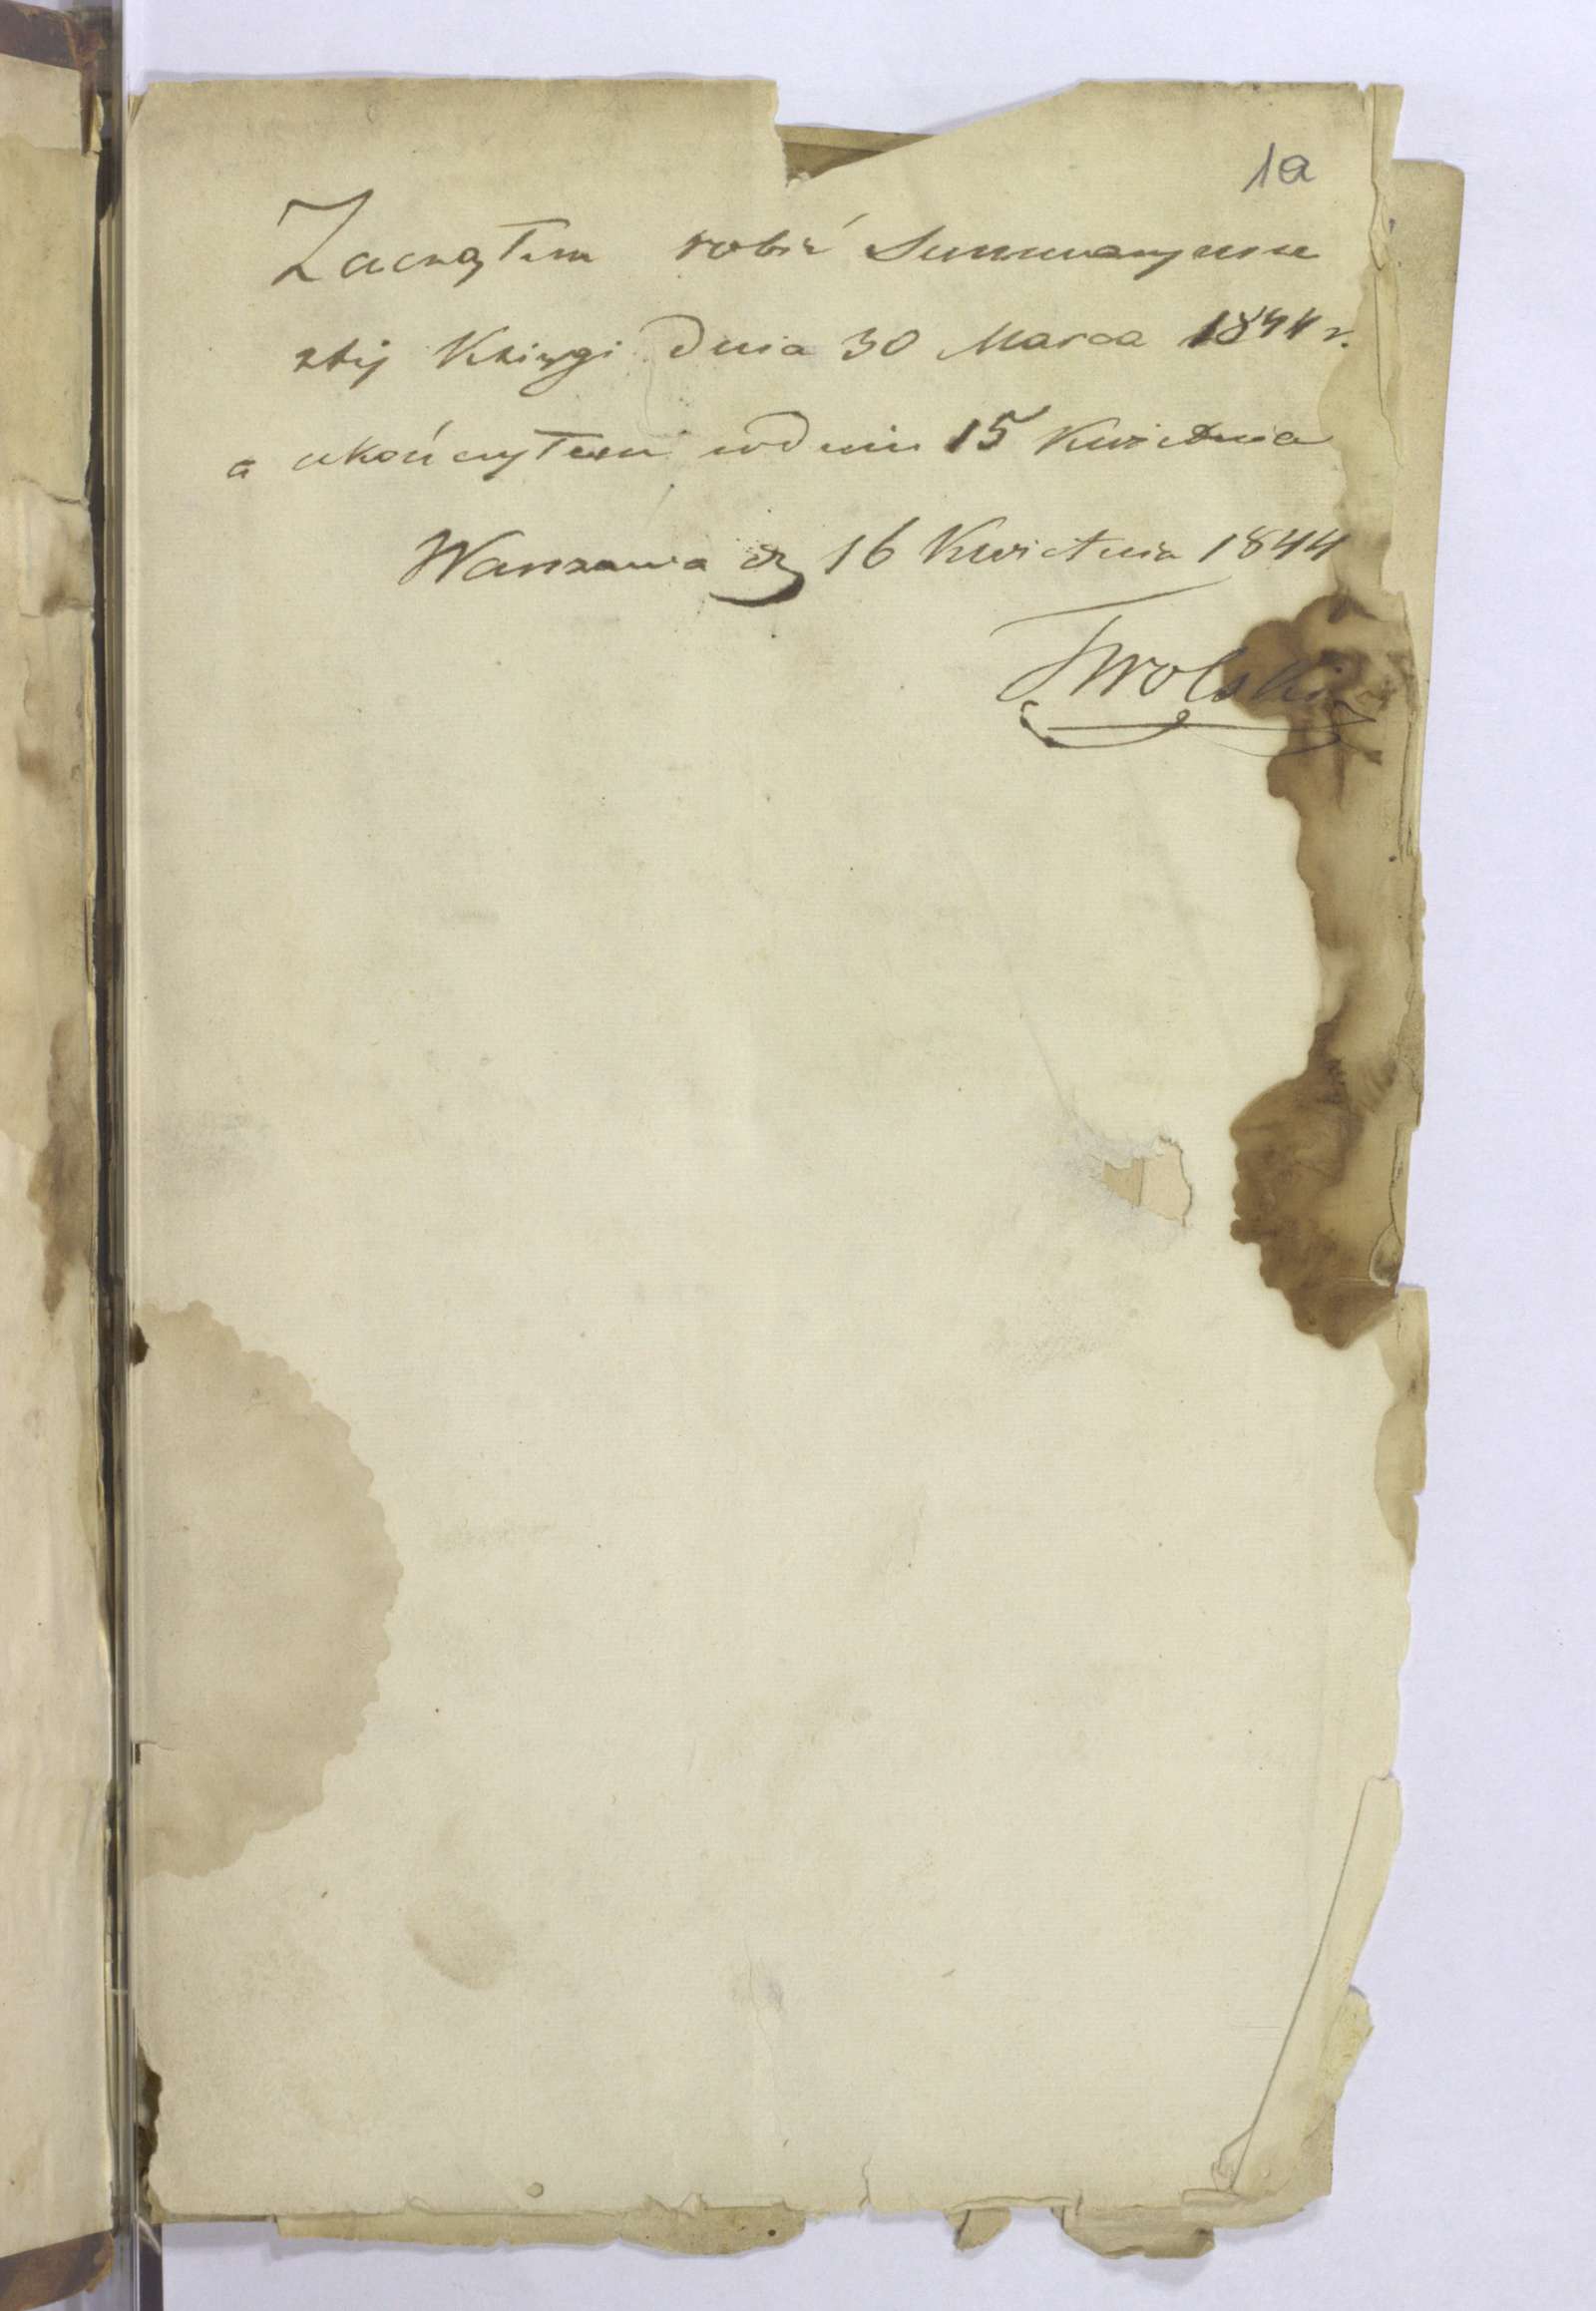 1a
Zacząłem robić Summaryusz
ztéj Księgi dnia 30 Marca 1844 r.
a ukończyłem wdniu 15 Kwietnia
Warszawa d 16 Kwietnia 1844